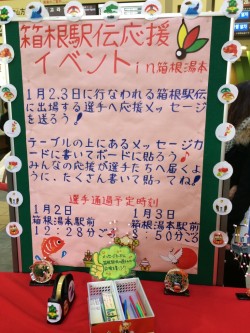 箱根駅伝応援
イベントin箱根湯本
1月2.3日に行なわれる箱根駅伝
に出場する選手へ応援メッセージ
を送ろう！
テーブルの上にあるメッセージカ
ードに書いてボードに貼ろう♪
みんなの応援が選手たちへ届くよ
うに、たくさん書いて貼ってね！
選手通過予定時刻
1月2日
箱根湯本駅前
12:28分ごろ
1月3日
箱根湯本駅前
8:50分ごろ